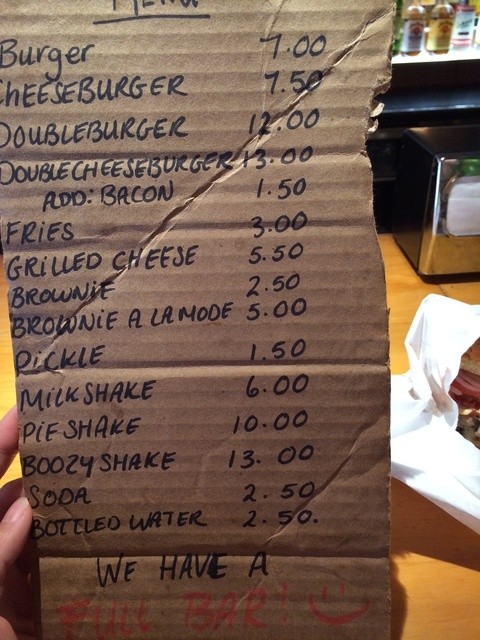 MENU
Burger 7.00
CHEESEBURGER 7.50
DOUBLEBURGER 12.00
DOUBLECHEESEBURGER 13.00
ADD: BACON 1.50
FRIES 3.00
GRILLED CHEESE 5.50
BROWNIE 2.50
BROWNIE A LA MODE 5.00
PICKLE 1.50
MILKSHAKE 6.00
PIE SHAKE 10.00
BOOZY SHAKE 13.00
SODA 2.50
BOTTLED WATER 2.50.
WE HAVE A
FULL BAR!